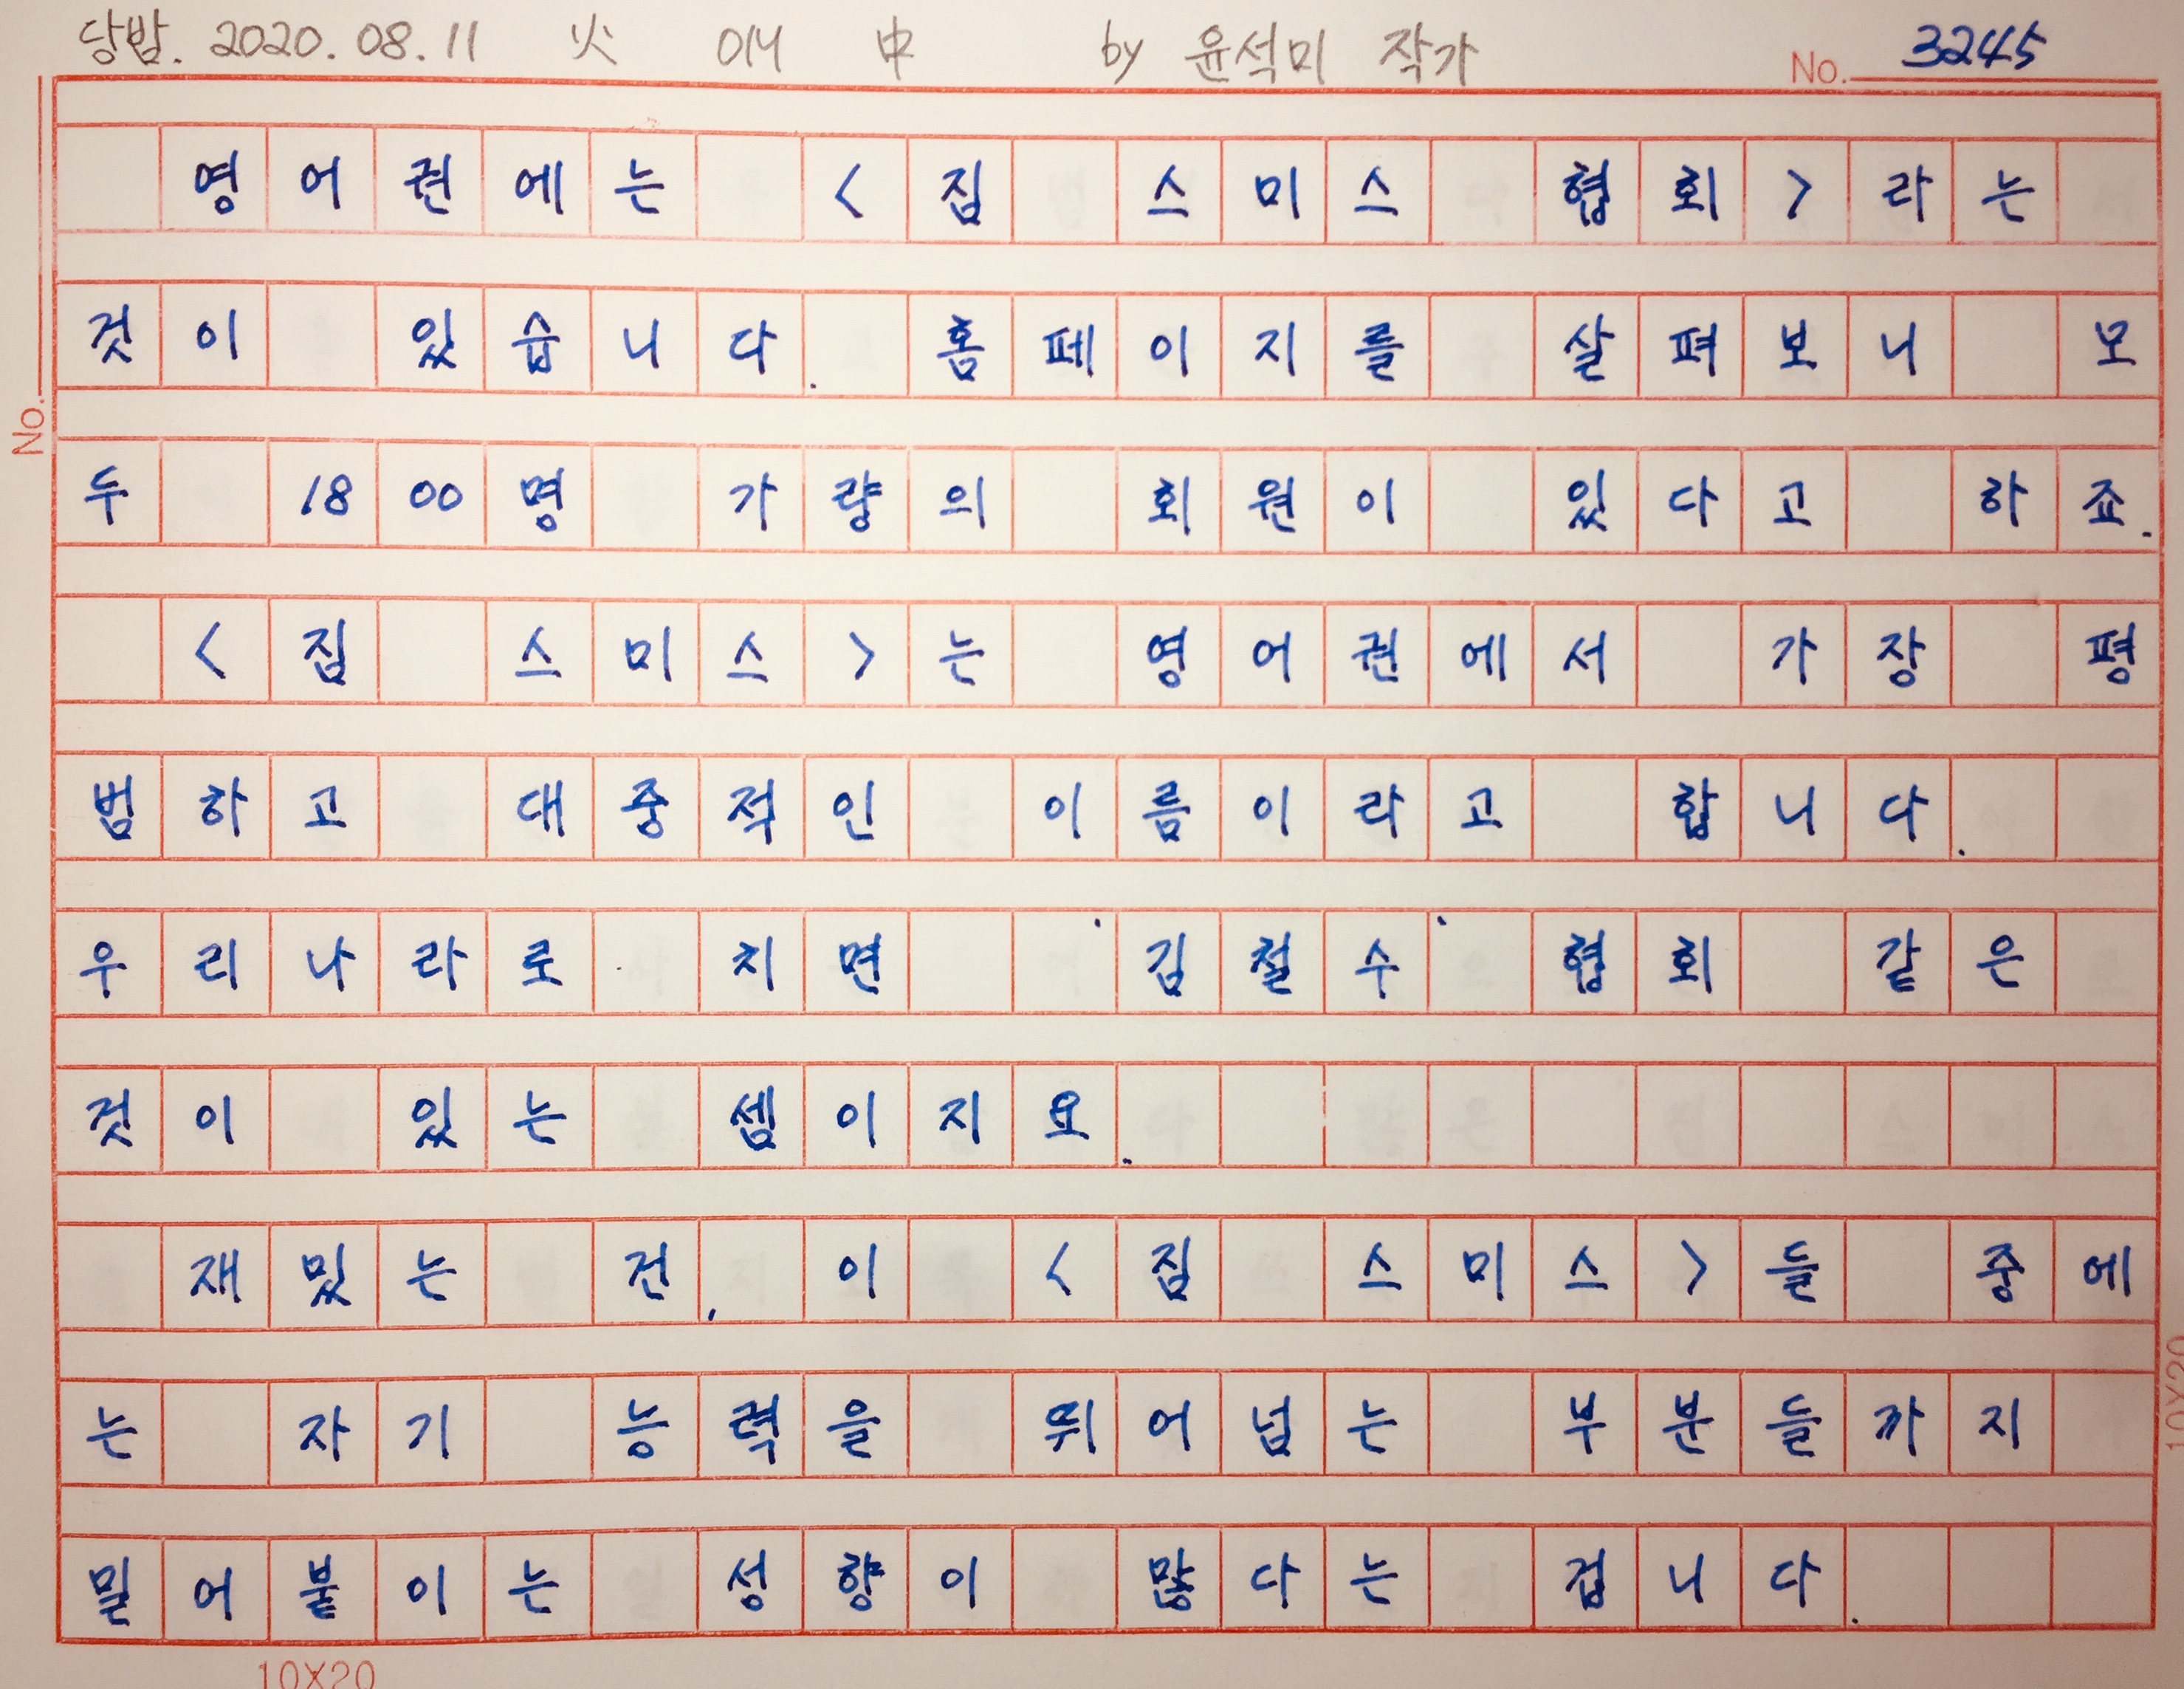 당밤. 2020. 08. 11 火 011 中 by 윤석미 작가 No. 3245
영어권에는 <집 스미스 협회>라는
것이 있습니다. 홈페이지를 살펴보니 모
No.
두 1800명 가량의 회원이 있다고 하죠.
<집 스미스>는 영어권에서 가장 평
범하고 대중적인 이름이라고 합니다.
우리나라로 치면 '김철수' 협회 같은
것이 있는 셈이지요.
재밌는 건, 이 <집 스미스>들 중에
는 자기 능력을 뛰어넘는 부분들까지
10X20
밀어붙이는 성향이 많다는 겁니다.
10X20